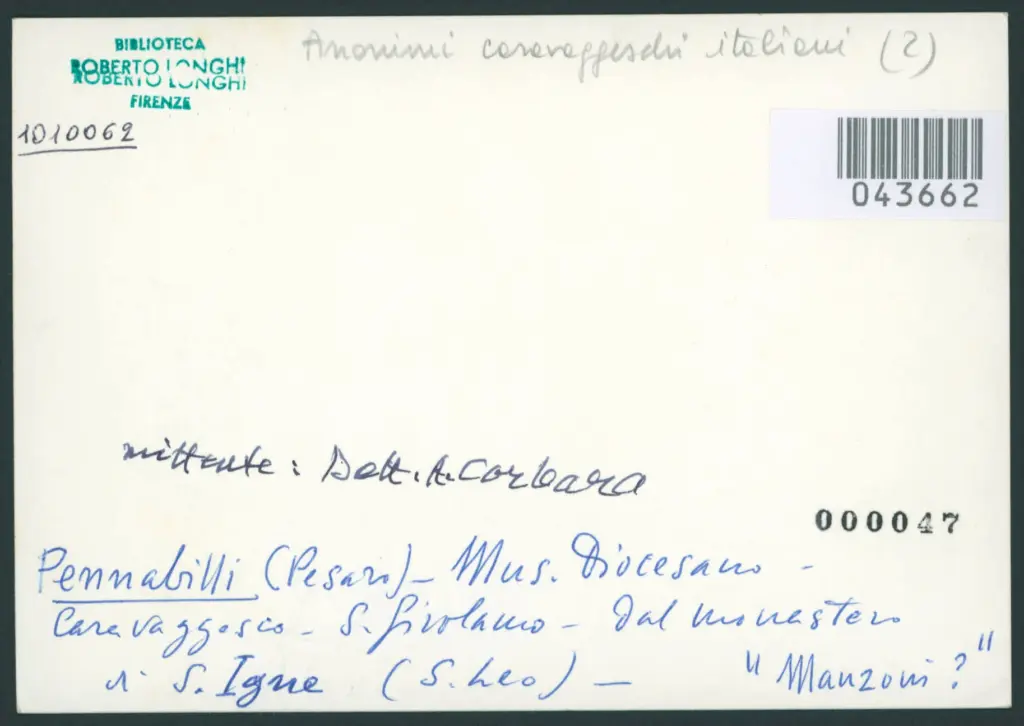 BIBLIOTECA
ROBERTO LONGHI
ROBERTO LONGHI
FIRENZE
Anonimi caravaggeschi italiani (2)
1010062
043662
mittente: Dott. A. Corbara
000047
Pennabilli (Pesaro) - Mus. Diocesano -
Caravaggesco - S. Girolamo - dal monastero
di S. Igne (S. Leo) - "Manzoni?"